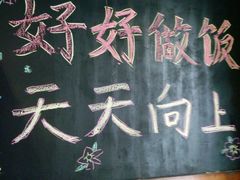 好好做饭
天天向上